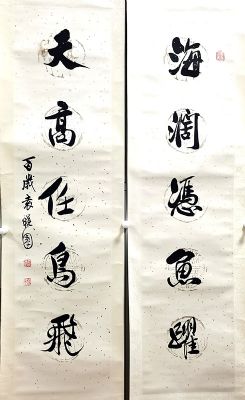 海阔憑魚躍
天高任鳥飛
百歲